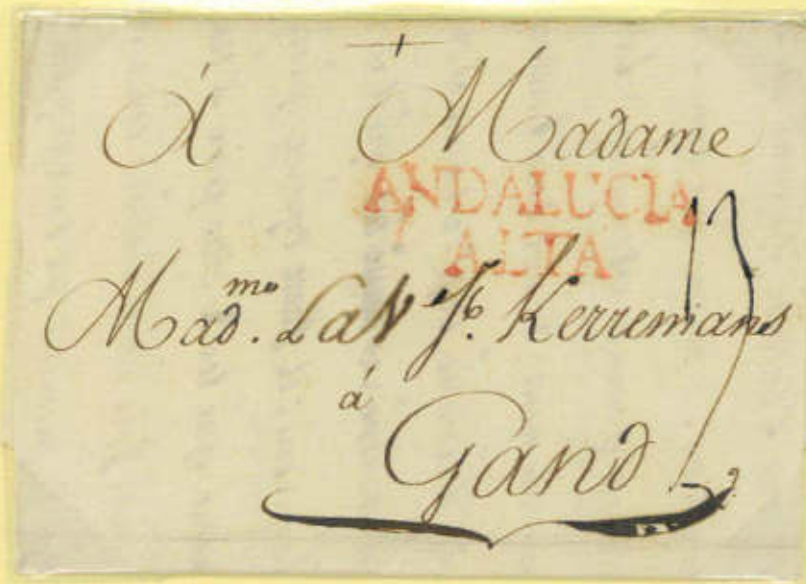 Á Madame
ANDALUCIA
ALTA
Mad.me La Ve J. Kerremans
á
Gand